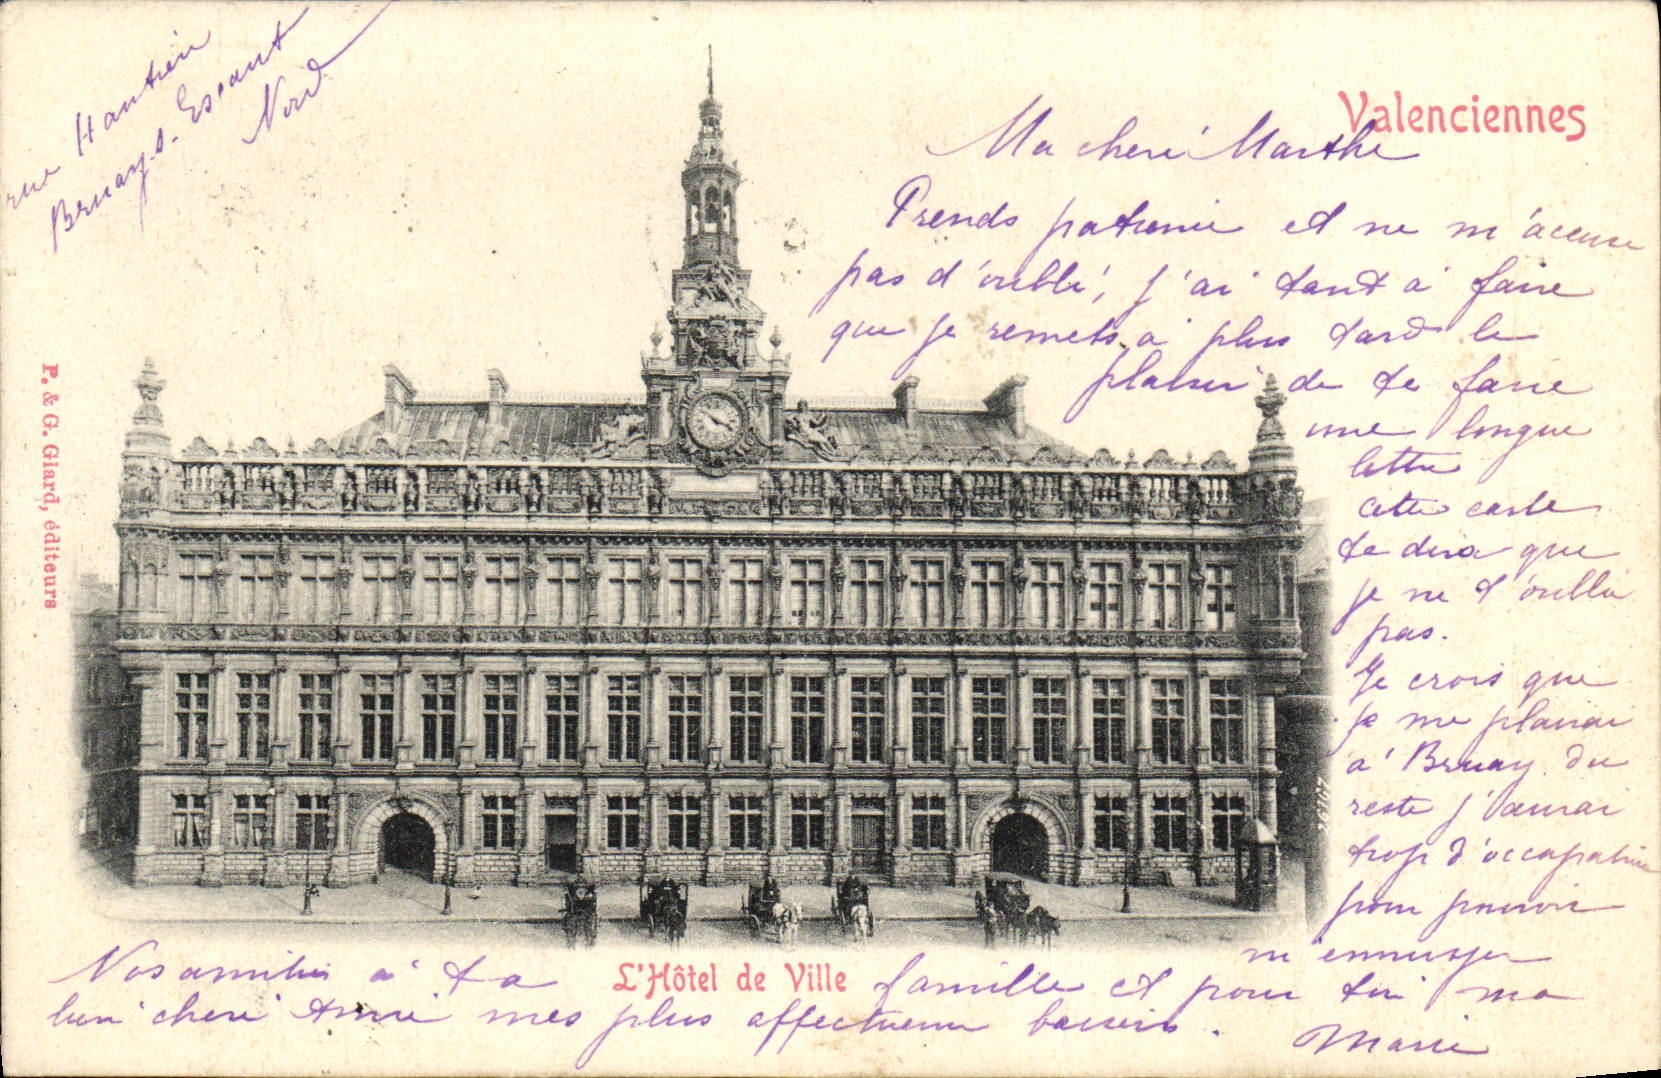 rue Hautin
Bruay-s-Escaut
Nord
Valenciennes
Ma cheré Marthe
Prends patience et ne m'accuse
pas d'oubli, j'ai tant à faire
que je remets à plus tard le
plaisir de te faire
une longue
lettre
cette carte
te dira que
je ne t'oublie
pas.
Je crois que
je me plairai
à Bruay du
reste j'aurai
trop d'occupation
pour pouvoir
m'ennuyer
Nos amitiés à ta famille et pour toi ma
bien cheré Amie mes plus affectueux baisers.
Marie
L'Hôtel de Ville
P. & G. Giard, éditeurs